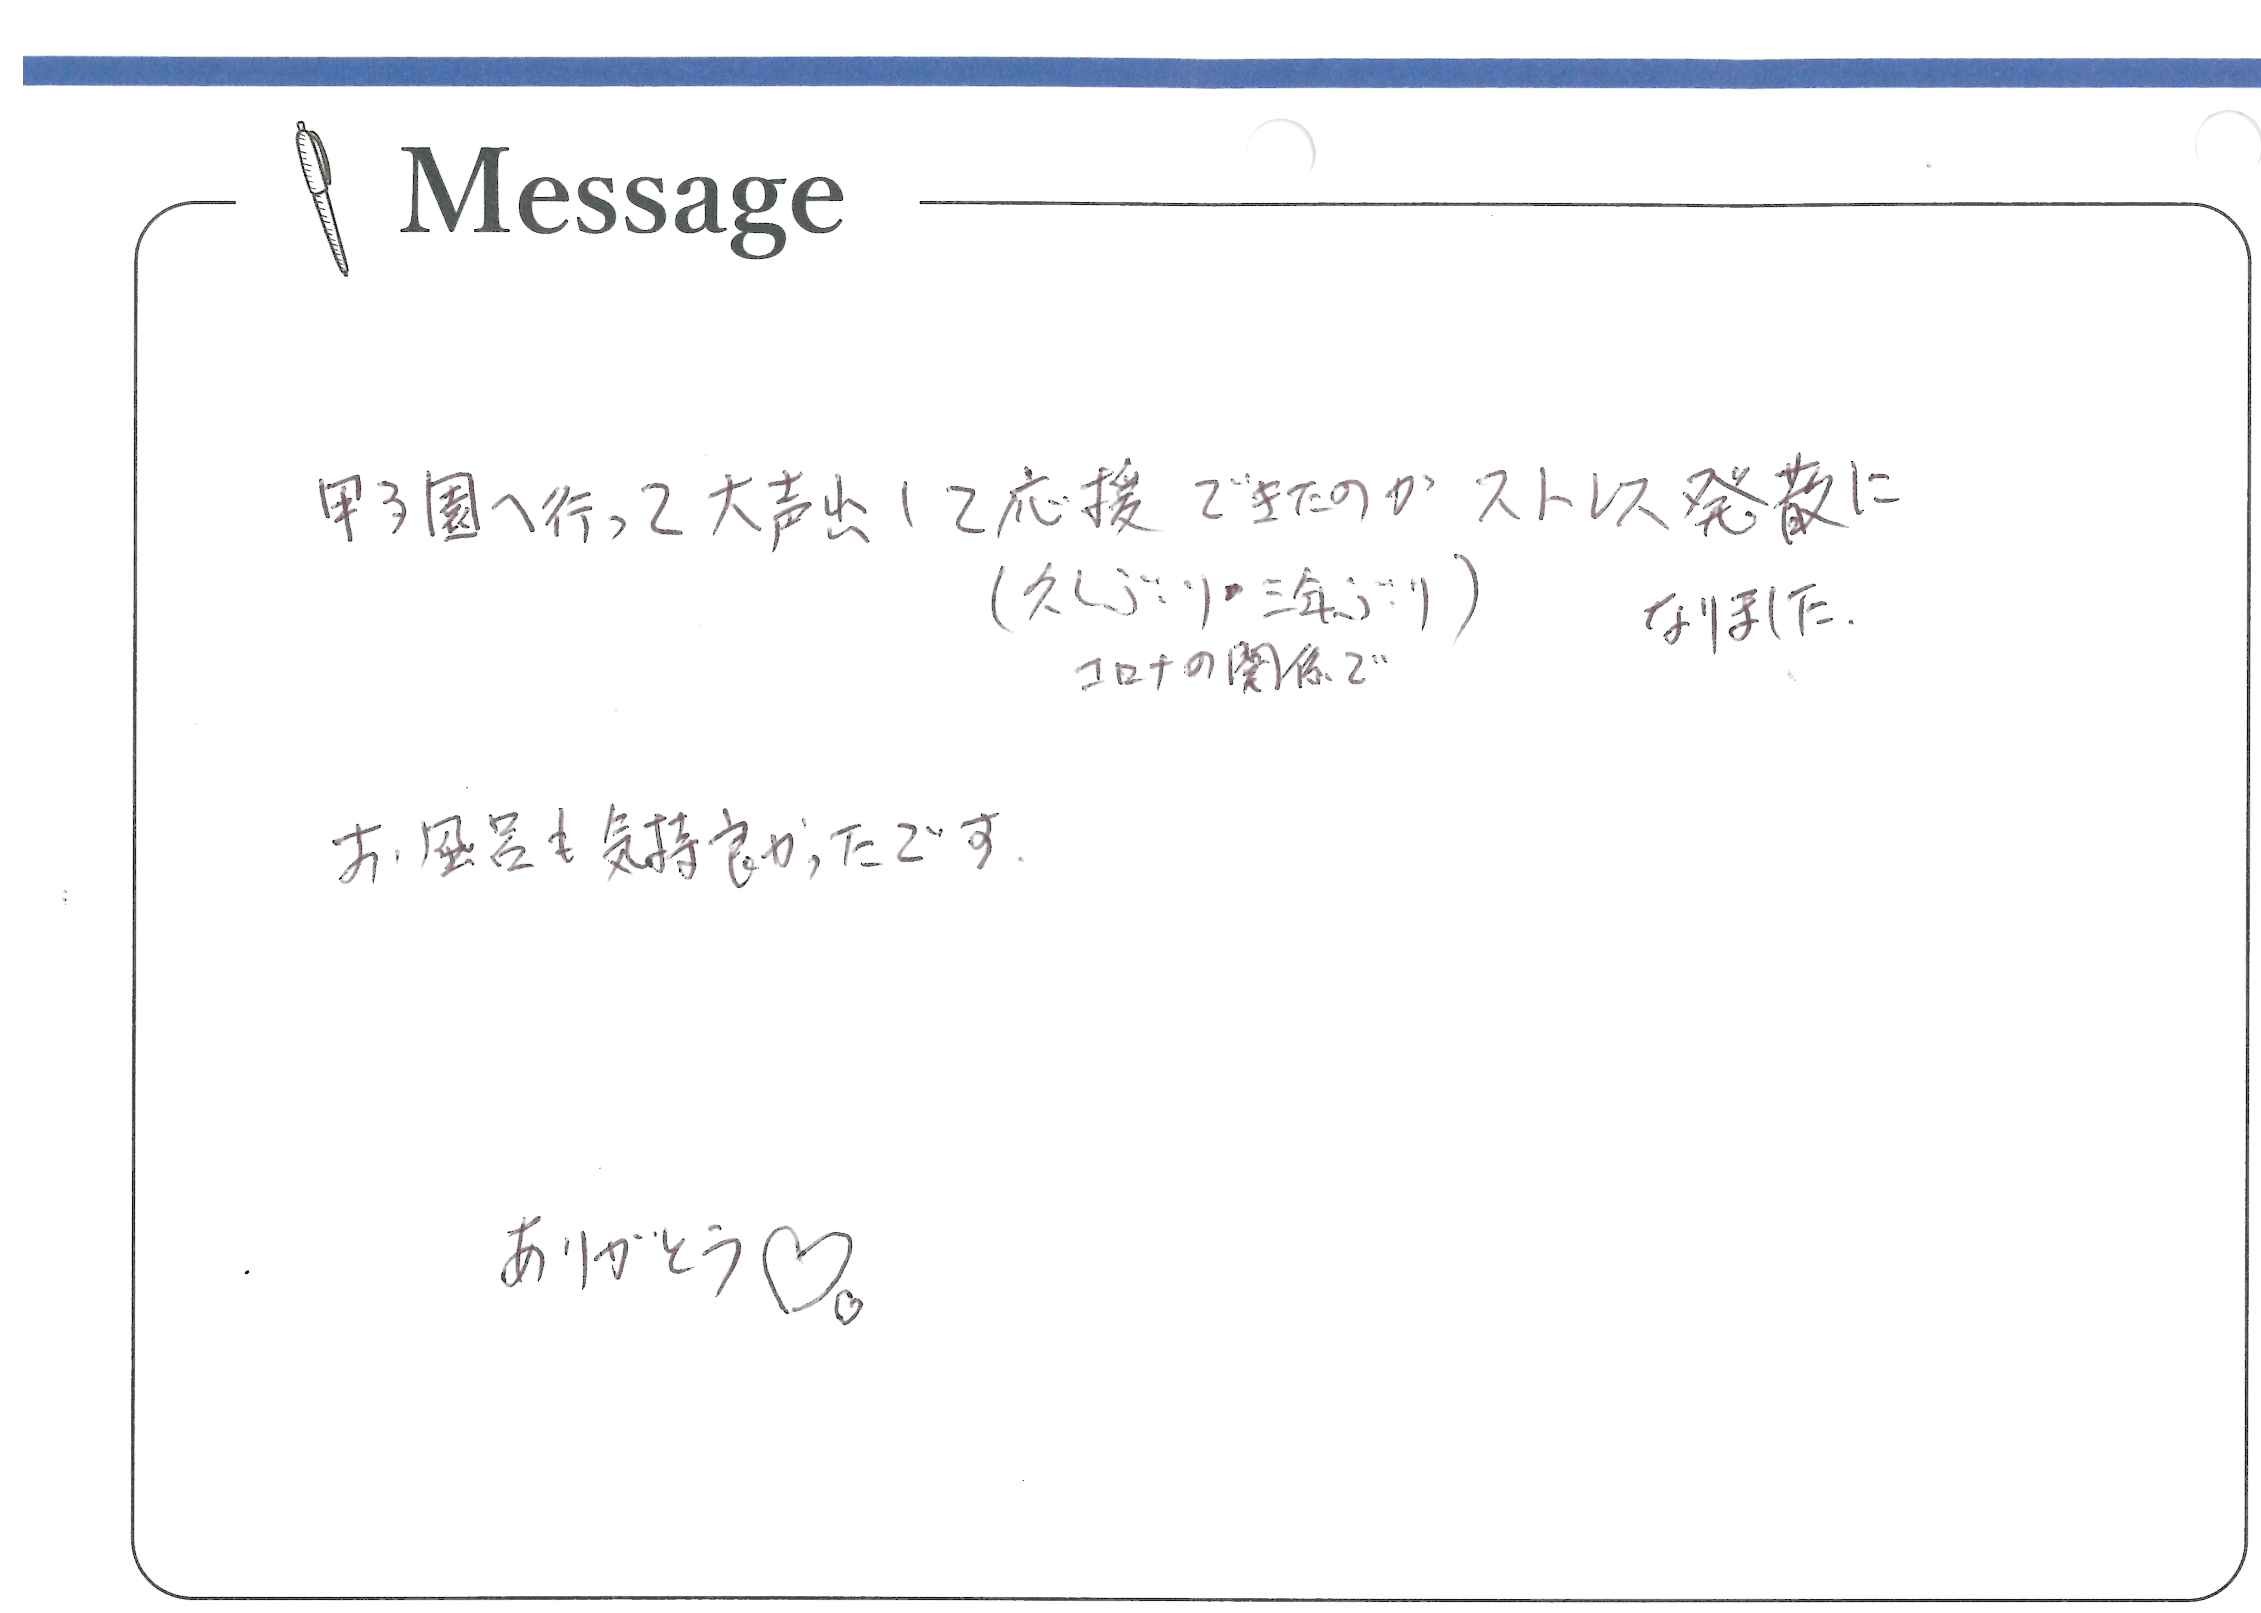 Message
甲子園へ行って大声出して応援できたのがストレス発散に
(久しぶり・三年ぶり) なりました.
コロナの関係で
お風呂も気持良かったです.
ありがとう♡♡